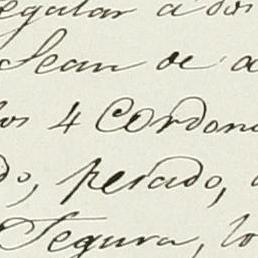 egalar a dos
Sean de a
los 4 Cordon
do, pesado,
Segura, lo